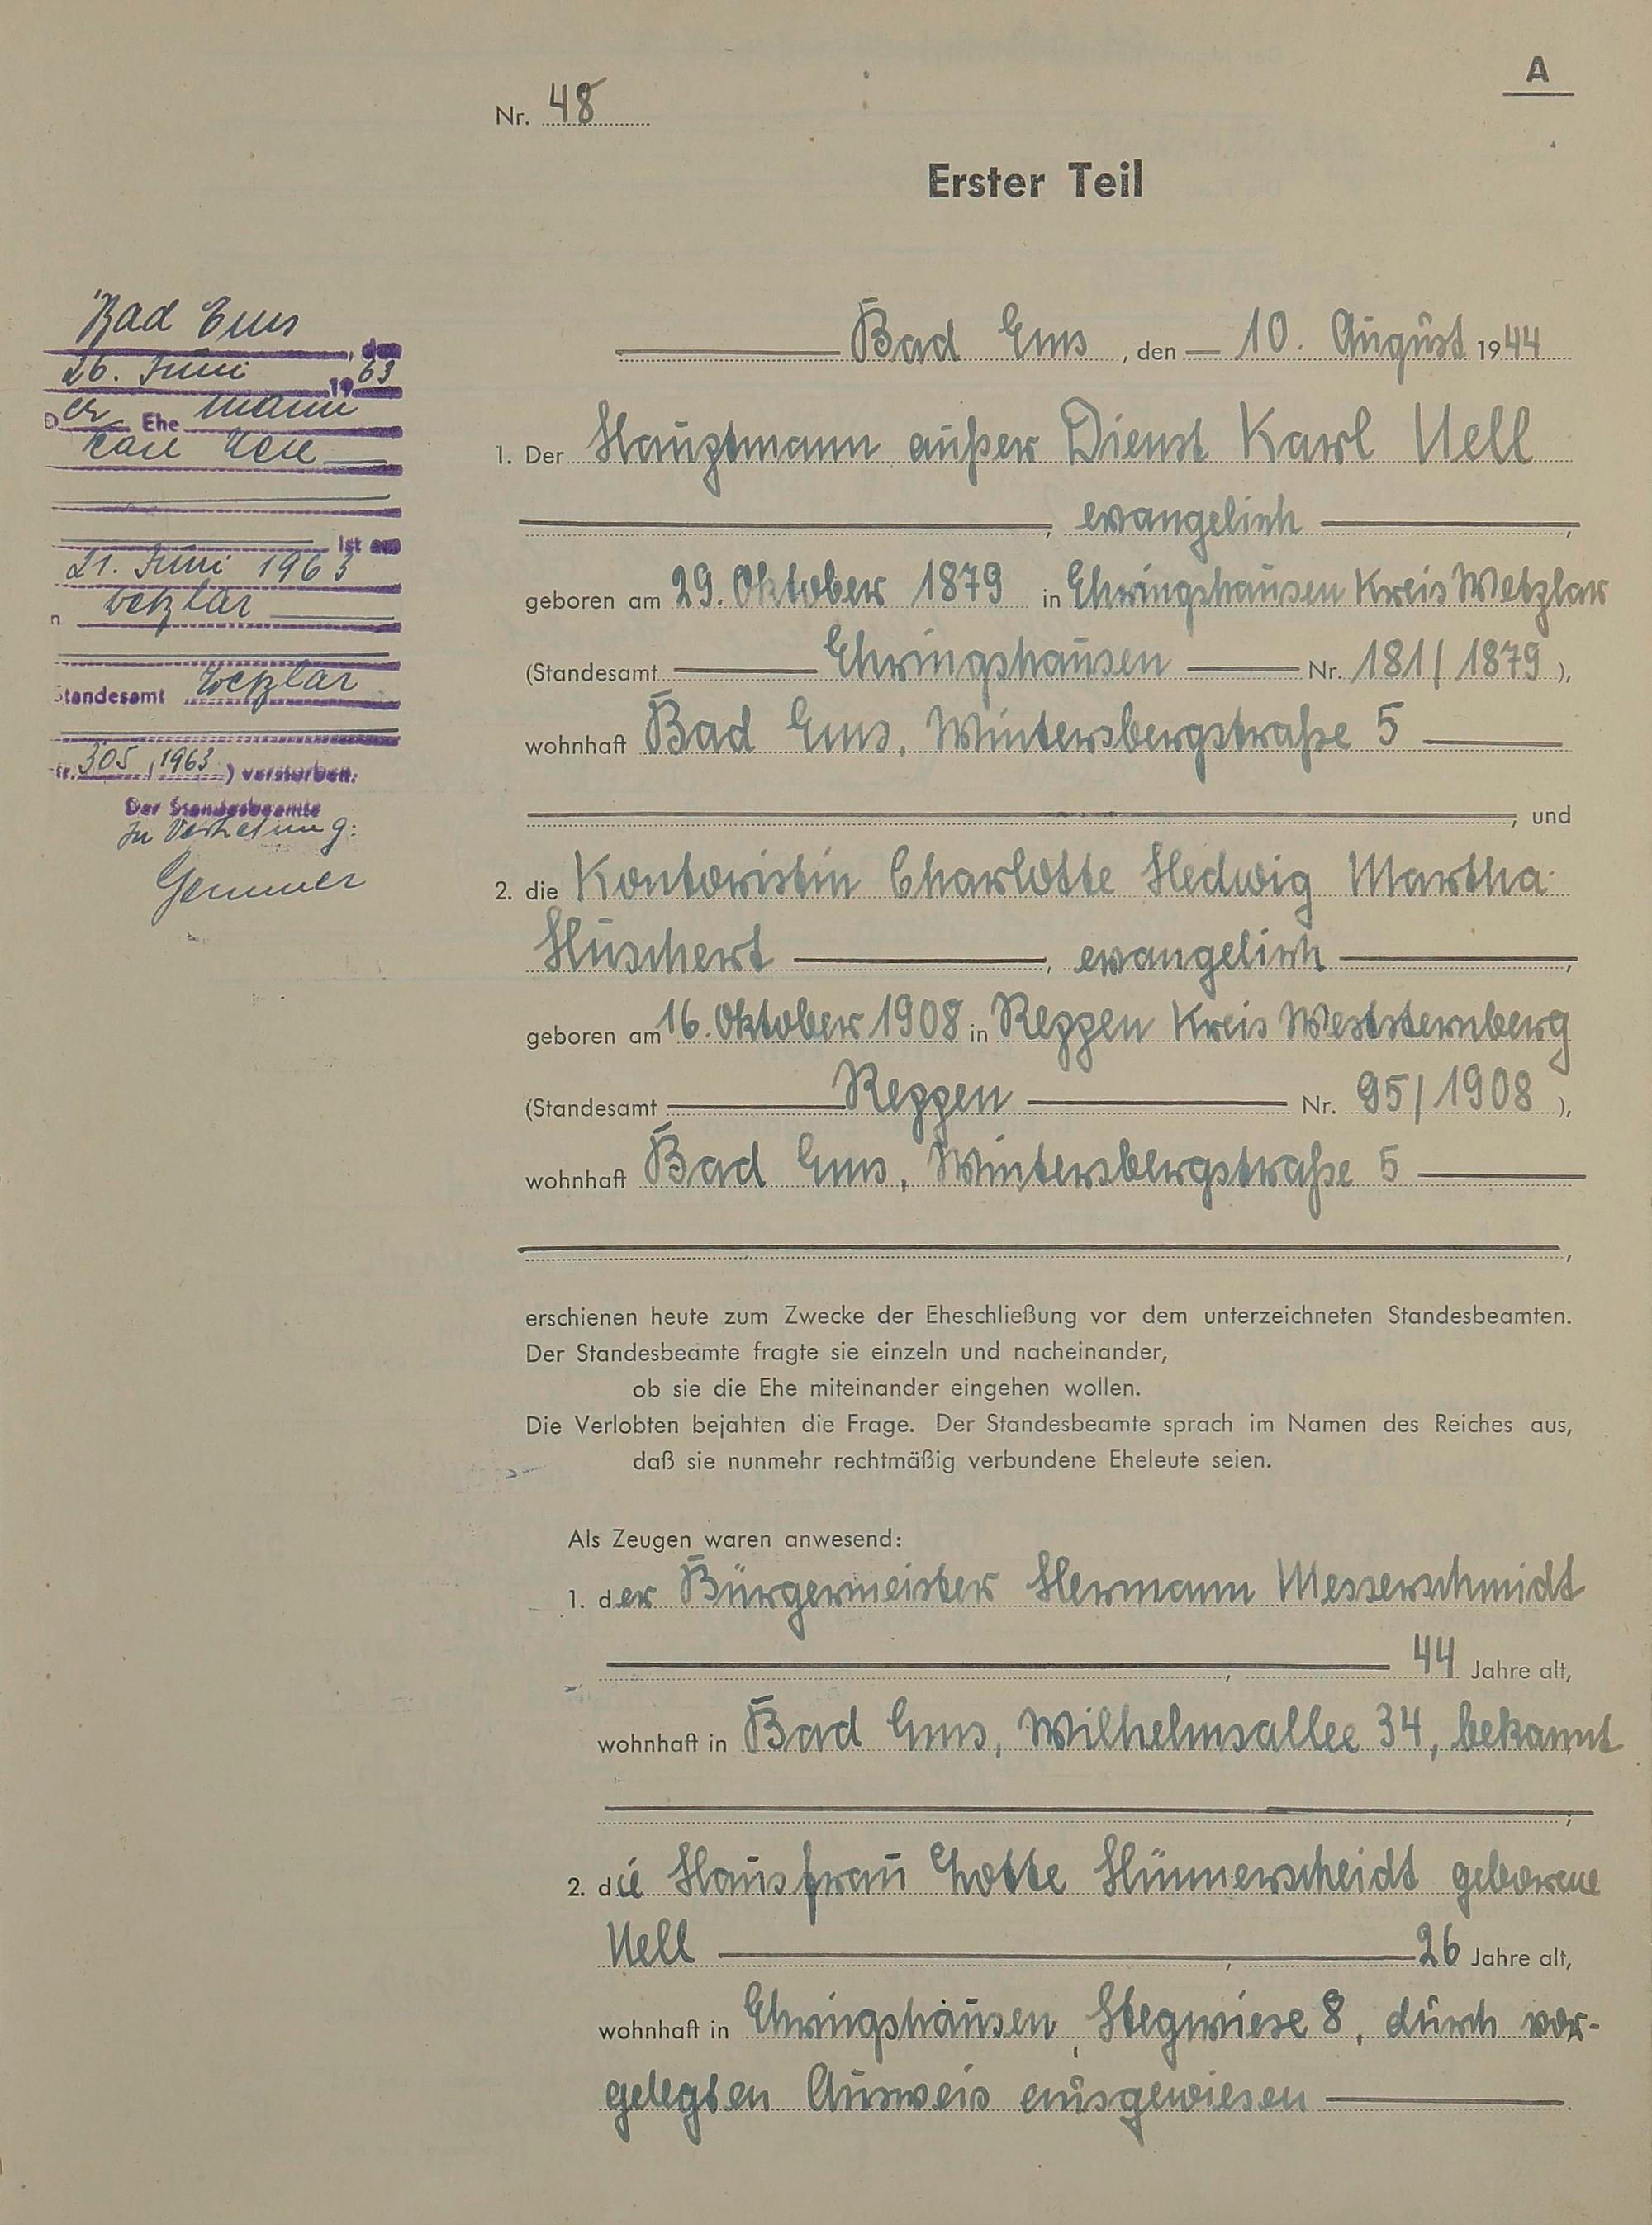 A
Nr. 48
Erster Teil
Bad Ems, den 10. August 1944
1. Der Hauptmann außer Dienst Karl Nell
, evangelisch ,
geboren am 29. Oktober 1879 in Ehringshausen Kreis Wetzlar
(Standesamt Ehringshausen Nr. 181/1879),
wohnhaft Bad Ems, Wintersbergstraße 5
, und
2. die Kontoristin Charlotte Hedwig Martha
Huschert , evangelisch ,
geboren am 16. Oktober 1908 in Reppen Kreis Weststernberg
(Standesamt Reppen Nr. 95/1908),
wohnhaft Bad Ems, Wintersbergstraße 5
,
erschienen heute zum Zwecke der Eheschließung vor dem unterzeichneten Standesbeamten.
Der Standesbeamte fragte sie einzeln und nacheinander,
ob sie die Ehe miteinander eingehen wollen.
Die Verlobten bejahten die Frage. Der Standesbeamte sprach im Namen des Reiches aus,
daß sie nunmehr rechtmäßig verbundene Eheleute seien.
Als Zeugen waren anwesend:
1. der Bürgermeister Hermann Messerschmidt
, 44 Jahre alt,
wohnhaft in Bad Ems, Wilhelmsallee 34, bekannt
;
2. die Hausfrau Lotte Hünnerscheidt geborene
Nell , 26 Jahre alt,
wohnhaft in Ehringshausen, Stegwiese 8, durch vor-
gelegten Ausweis ausgewiesen .
Bad Ems
, den
26. Juni 1963
Der Ehemann
Karl Nell
ist am
21. Juni 1963
n Wetzlar
Standesamt Wetzlar
Nr. 305 / 1963 ) verstorben.
Der Standesbeamte
In Vertretung:
Gemmer